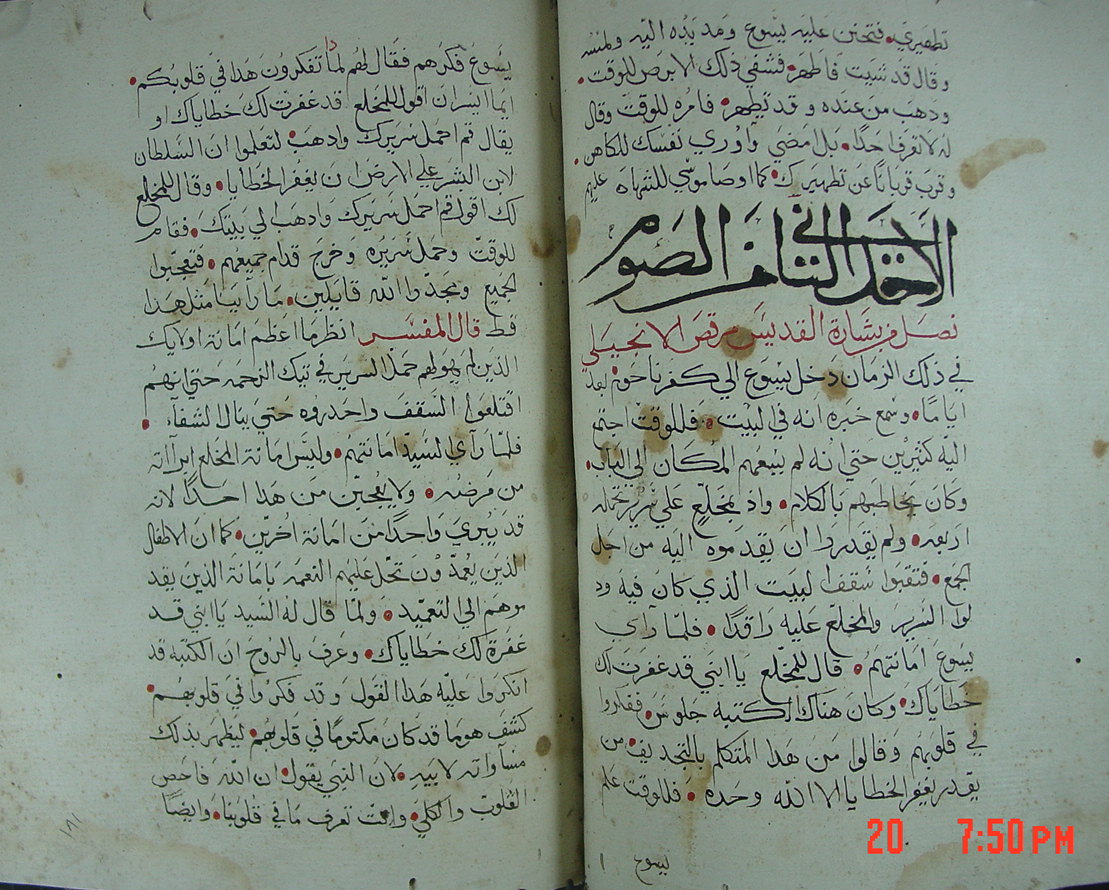 تطهيري. فتحنن عليه يسوع ومد يده اليه ولمسه
وقال قد شيت فاطهر. فشفي ذلك الابرص للوقت.
وذهب من عنده وقد تطهر. فامره للوقت وقال
له لا تعرف احدًا. بل امضي واوري نفسك للكاهن.
وقرب قربانًا عن تطهيرك. كما اوصا موسي للشهاده عليهم
الاحد الثاني من الصوم
فصل من بشارة القديس مرقص الانجيلي
في ذلك الزمان دخل يسوع الي كفرناحوم بعد
ايامًا. وسمع خبره انه في البيت. فللوقت اجتمع
اليه كثيرين حتي انه لم يسعهم المكان الي الباب.
وكان يخاطبهم بالكلام. واذ بمخلعٍ علي سرير تحمله
اربعه. ولم يقدروا ان يقدموه اليه من اجل
الجمع. فنقبوا سقف البيت الذي كان فيه ود
لوا السرير والمخلع عليه راقدًا. فلما رآي
يسوع امانتهم. قال للمخلع يا ابني قد غفرت لك
خطاياك. وكان هناك الكتبه جلوس. ففكروا
في قلوبهم وقالوا من هذا المتكلم بالتجديف. من
يقدر يغفر الخطايا الا الله وحده. فللوقت علم
يسوع
يسوع فكرهم فقال لهم لماذا تفكرون هذا في قلوبكم.
ايما ايسر ان اقول للمخلع قد غفرت لك خطاياك او
يقال قم احمل سريرك واذهب. لتعلموا ان السلطان
لابن البشر علي الارض ان يغفر الخطايا. وقال للمخلع
لك اقول قم احمل سريرك واذهب الي بيتك. فقام
للوقت وحمل سريره وخرج قدام جميعهم. فتعجبوا
الجميع ومجدوا الله قايلين. ما راينا مثل هذا
قط قال المفسر انظر ما اعظم امانة اولايك
الذين لم يهولهم حمل السرير في تيك الزحمه حتي انهم
اقتلعوا السقف واحدروه حتي ينال الشفآء.
فلما رآي السيد امانتهم. وليس امانة المخلع ابرآاته
من مرضه. ولا يعجبن من هذا احدًا لانه
قد يبري واحدًا من امانة اخرين. كما ان الاطفال
الذين يعمدون تحل عليهم النعمه بامانة الذين يقد
موهم الي التعميد. ولما قال له السيد يا ابني قد
غفرة لك خطاياك. وعرف بالروح ان الكتبه قد
انكروا عليه هذا القول وقد فكروا في قلوبهم.
كشف هو ما قد كان مكتومًا في قلوبهم. ليظهر بذلك
مساواته لابيه. لان النبي يقول. ان الله فاحص
القلوب والكلي. وانت تعرف ما في قلوبنا. وايضًا
١٨١
20 7:50 PM